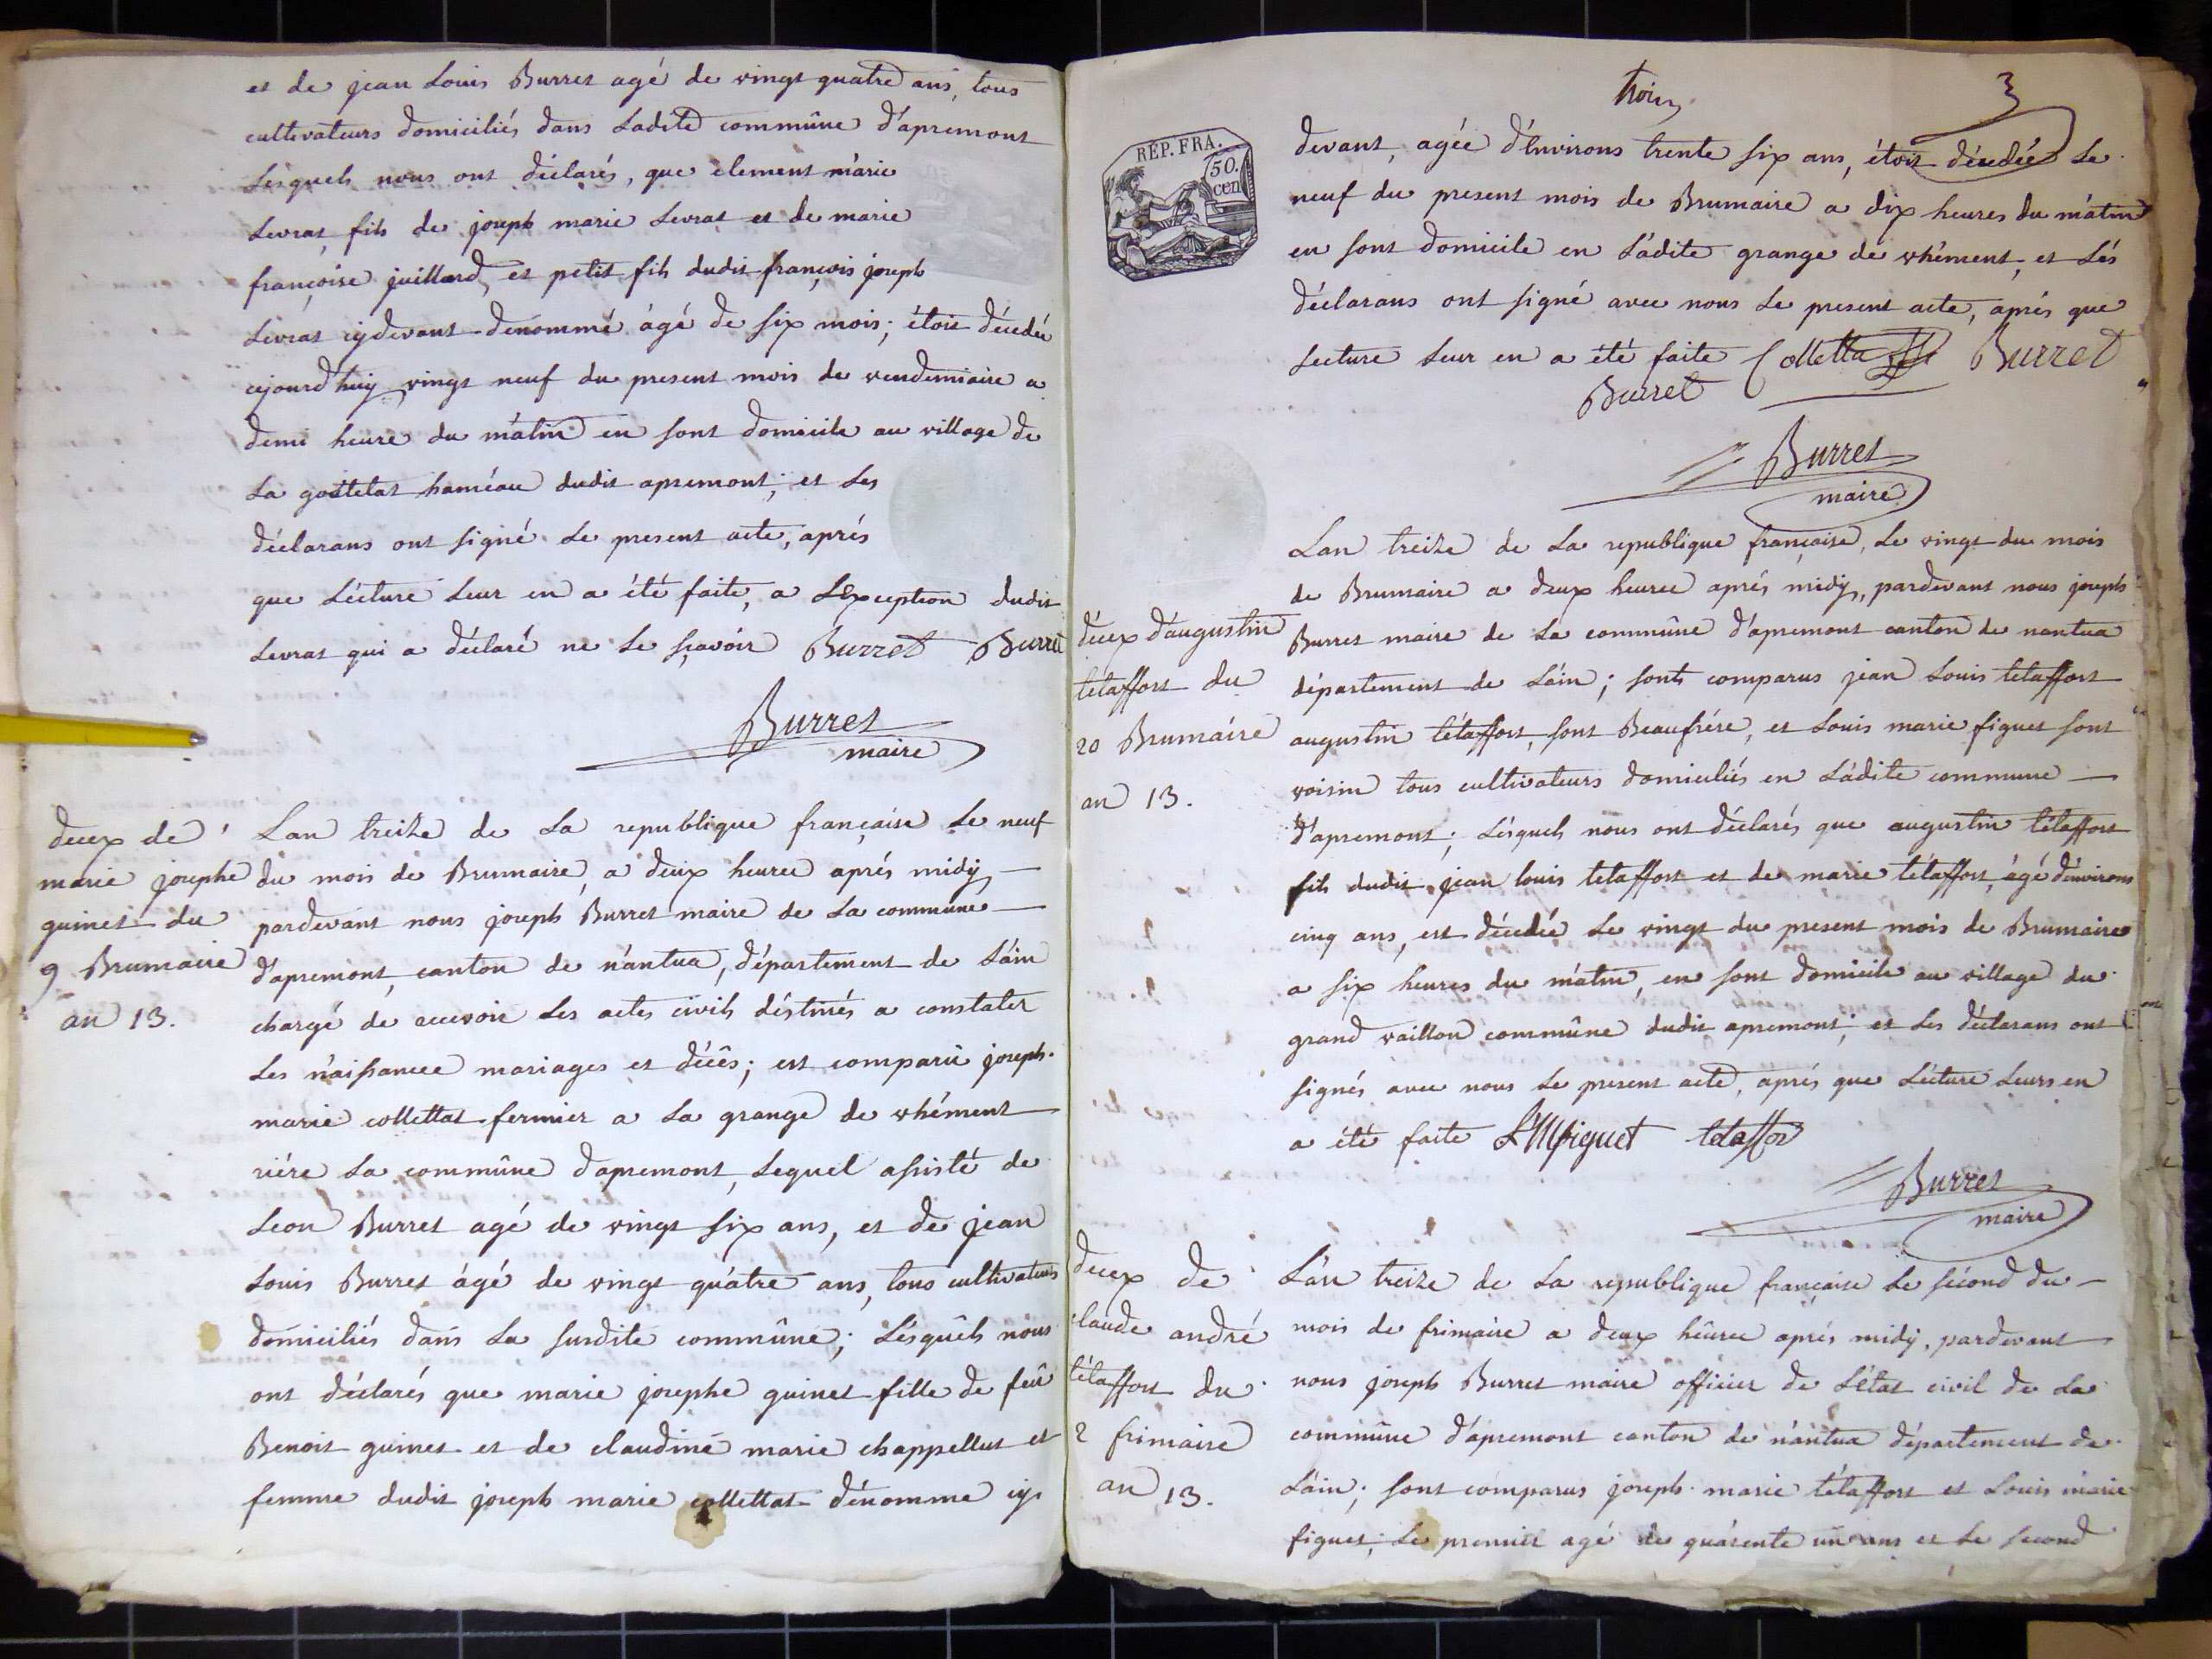 et de jean Louis Burret agé de vingt quatre ans, tous
cultivateurs domiciliés dans Ladite commûne d'apremont
Lésquels nous ont déclarés, que clement màrie
Levrat, fils de joseph marie Levrat et de marie
françoise juillard, et petit fils dudit françois joseph
Levrat cydevant denommé ágé de six mois; étoit décedée
cejourd'huy vingt neuf du present mois de vendemiaire a
demi heure du mátin en sont domicile au village de
La goutelat haméau dudit apremont; et Les
déclarans ont signé Le present acte, aprés
que Lécture Leur en a été faite, a Lexception dudit
Levrat qui a déclaré ne Le sçavoir Burret Burret
Burret
maire
decex de
marie josephe
guinet du
9 Brumaire
an 13.
Lan treize de La republique française Le neuf
du mois de Brumaire, a deux heures aprés midy
pardevant nous joseph Burret maire de La commune
d'apremont, canton de nántua, département de Láin
chargé de recevoir Les actes civils déstinés a constater
Les naissances mariages et décês; est comparû joseph
marie collettat fermier a La grange de vhément
riére La commûne d'apremont, Lequel assisté de
Leon Burret agé de vingt six ans, et de jean
Louis Burret ágé de vingt quátre ans, tous cultivateurs
domiciliés dans La susdite commûne; Lésquêls nous
ont déclarés que marie josephe guinet fille de feû
Benoit guinet et de claudine marie chappellut et
femme dudit joseph marie collettat dénomme cy
trois
3
RÉP. FRA.
50.
cen
devant, agée d'Environs trente six ans, étoit décedée Le
neuf du present mois de Brumaire a dix heures du mátin
en sont domicile en Ládite grange de vhément, et Lés
déclarans ont signé avec nous Le present acte, aprés que
Lecture Leur en a été faite Colletta Burret
Burret
Burret
maire
décex d'augustin
tétaffort du
20 Brumáire
an 13.
Lan treize de La republique française, Le vingt du mois
de Brumaire a deux heures aprés midy, pardevant nous joseph
Burret maire de La commûne d'apremont canton de nantua
département de Láin; sonts comparus jean Louis tetaffort
augustin tétaffort, sont Beaufrére, et Louis marie figuet sont
voisin tous cultivateurs domiciliés en Ládite commune
d'apremont; Lésquels nous ont déclarés que augustin tétaffort
fils dudit jean louis tétaffort et de marie tétaffort, ágé d'environs
cinq ans, est décedé Le vingt du present mois de Brumaire
a six heures du mátin, en sont domicile au village du
grand vaillon commûne dudit apremont; et Les déclarans ont
signés avec nous Le present acte, aprés que Lécture Leurs en
a été faite L M figuet tétaffor
Burret
maire
decex de
claude andré
tétaffort du
2 frimaire
an 13.
Lán treize de La republique française Le sécond du
mois de frimaire a deux heures aprés midy, pardevant
nous joseph Burret maire officier de Létat civil de La
commûne d'ápremont canton de nántua département de
Láin; sont comparus joseph marie tétaffort et Louis marie
figuet; Le premier agé de quárente un ans et Le second